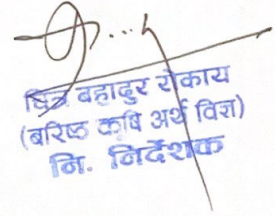 चित्र बहादुर रोकाय
(बरिष्ठ कृषि अर्थ विज्ञ)
नि. निर्देशक